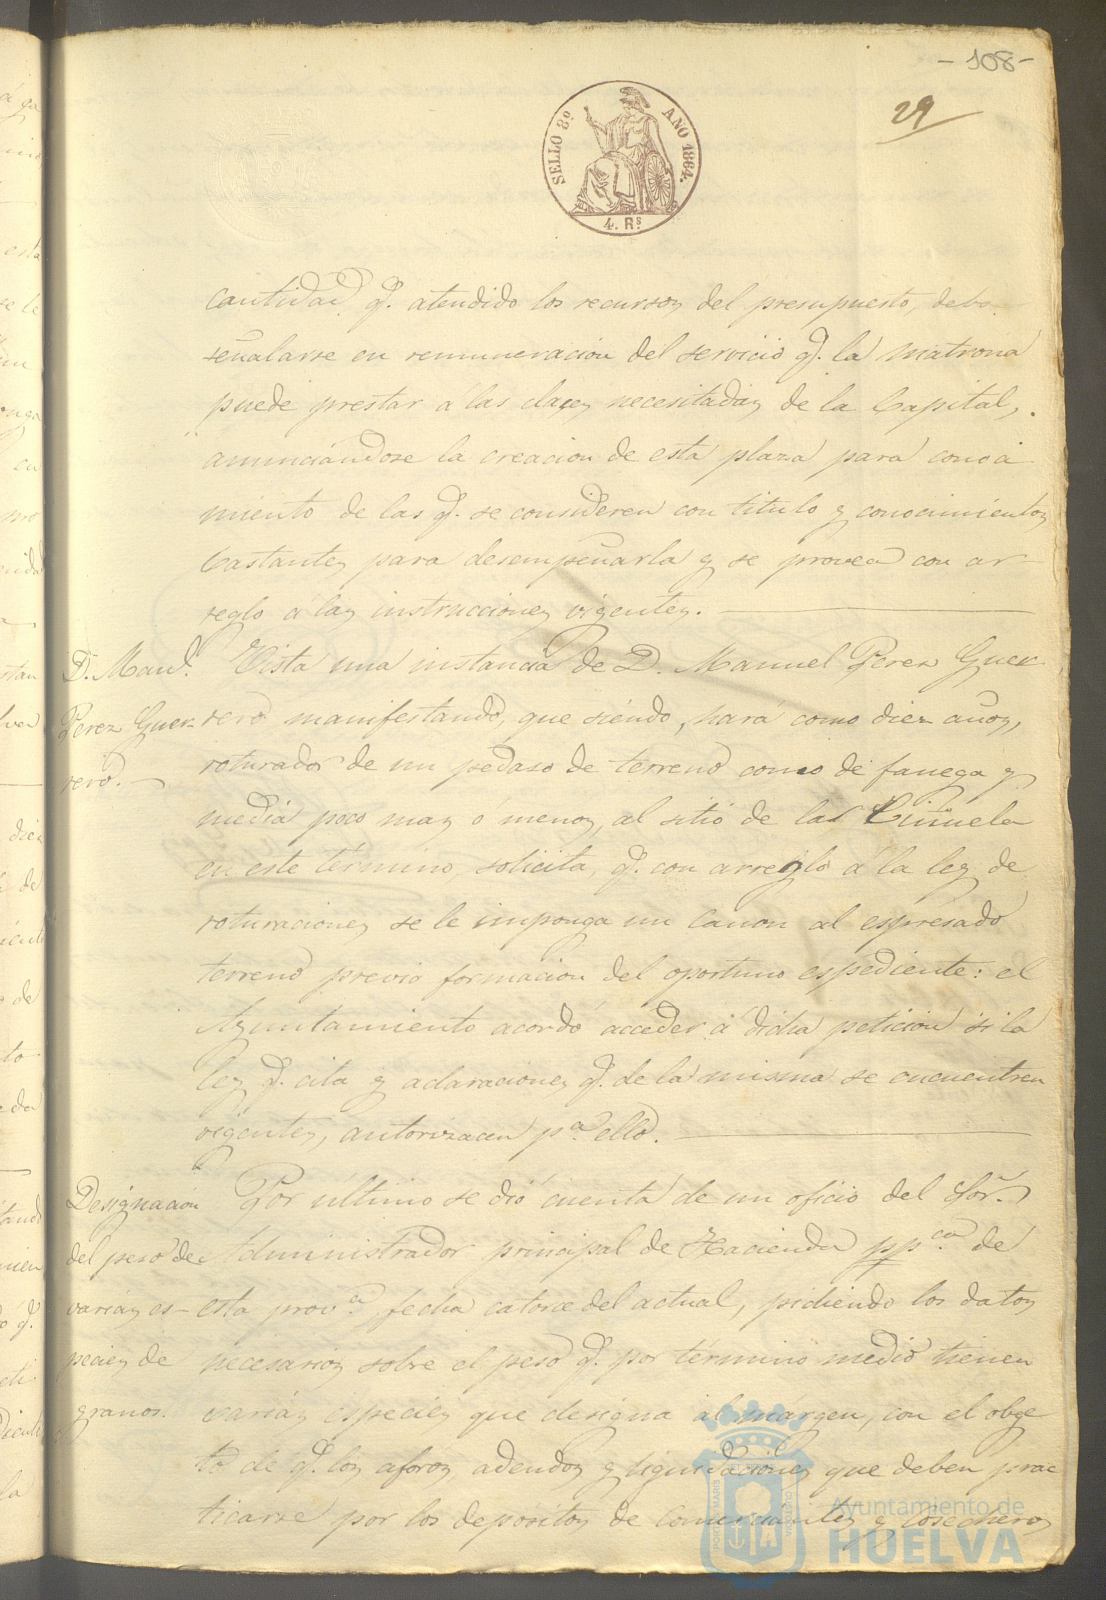 - 108 -
29
SELLO 8º AÑO 1864.
4. Rs
cantidad q.e atendido los recursos del presupuesto, deba
señalarse en remuneracion del servicio q.e la matrona
puede prestar a las clases necesitadas de la Capital,
anunciándose la creacion de esta plaza para conoci
miento de las q.e se consideren con titulo y conocimientos
bastantes para desempeñarla y se provea con ar-
reglo a las instrucciones vigentes.
D. Man.l
Perez Guer
rero.
Vista una instancia de D. Manuel Perez Guer
rero manifestando, que siendo, hará como diez años,
roturador de un pedaso de terreno como de fanega y
media poco mas ó menos, al sitio de las
en este término, solicita, q.e con arreglo a la ley de
roturaciones se le imponga un canon al espresado
terreno previo formacion del oportuno espediente: el
Ayuntamiento acordó acceder á dicha peticion si la
ley q.e cita y aclaraciones q.e de la misma se encuentren
vigentes, autorizacen p.a ello.
Designacion
del peso de
varias es-
pecies de
granos.
Por último se dió cuenta de un oficio del Sor.
Administrador principal de Hacienda pp.ca de
esta prov.a fecha catorce del actual, pidiendo los datos
necesarios sobre el peso q.e por término medio tienen
varias especies que designa al márgen, con el obge
to de q.e los aforos, adeudos y liquidaciones que deben prac
ticarse por los depositos de comerciantes y cosecheros
Ayuntamiento de
HUELVA